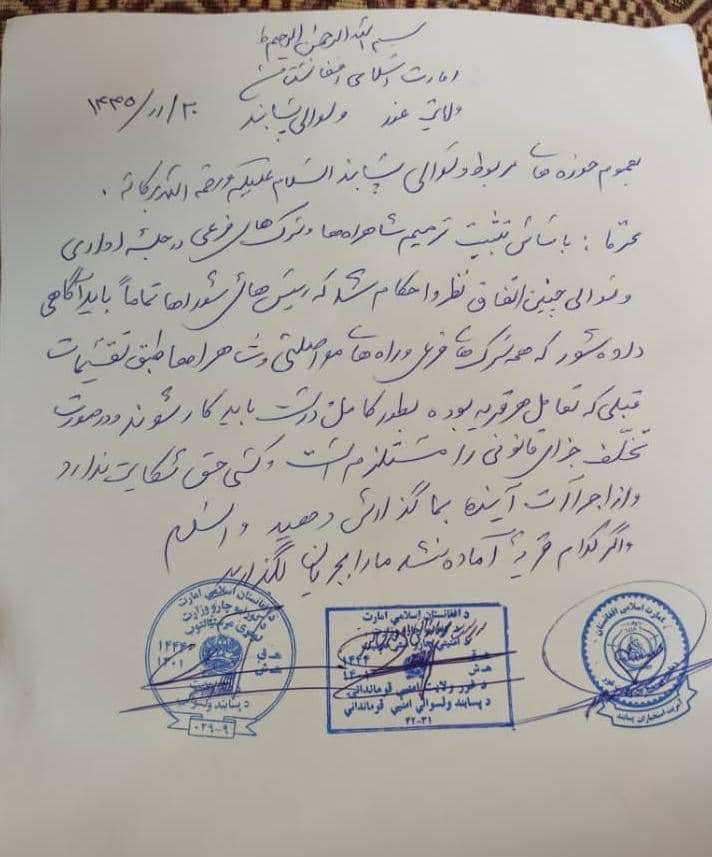 بسم الله الرحمن الرحیم
امارت اسلامی افغانستان
ولایت غور ولسوالی پسابند ۱۴۴۵/۱۱/۲۰
بعموم حوزه های مربوط ولسوالی پسابند السلام علیکم ورحمة الله وبرکاته .
محترما : باساس تثبیت ترمیم شاهراه ها وسرک های فرعی در جلسه اداری
ولسوالی چنین اتفاق نظر و احکام شد که رییس های شوراها تماماً باید آگاهی
داده شود که همه سرک های فرعی وراه های مواصلتی وشاهراه مطابق تقسیمات
قبلی که تعامل هر قریه بوده بطور کامل درست باید کار شوند ودرصورت
تخلف جزای قانونی را مستلزم است وکسی حق شکایت ندارد
واز اجراآت آینده بما گذارش دهید والسلام
واگر کدام قریه آماده نشد مارا بجریان بگذارید
د افغانستان اسلامي امارت
د کورنیو چارو وزارت
هـ ق ۱۴۴۴
هـ ش ۱۴۰۱
۰۲۹-۹
د افغانستان اسلامي امارت
هـ ق ۱۴۴۴
هـ ش
د غور ولایت امنیې قوماندانۍ
د پسابند ولسوالۍ امنیې قوماندانۍ
۴۲-۳۱
امارت اسلامی افغانستان
غور
استخبارات پسابند